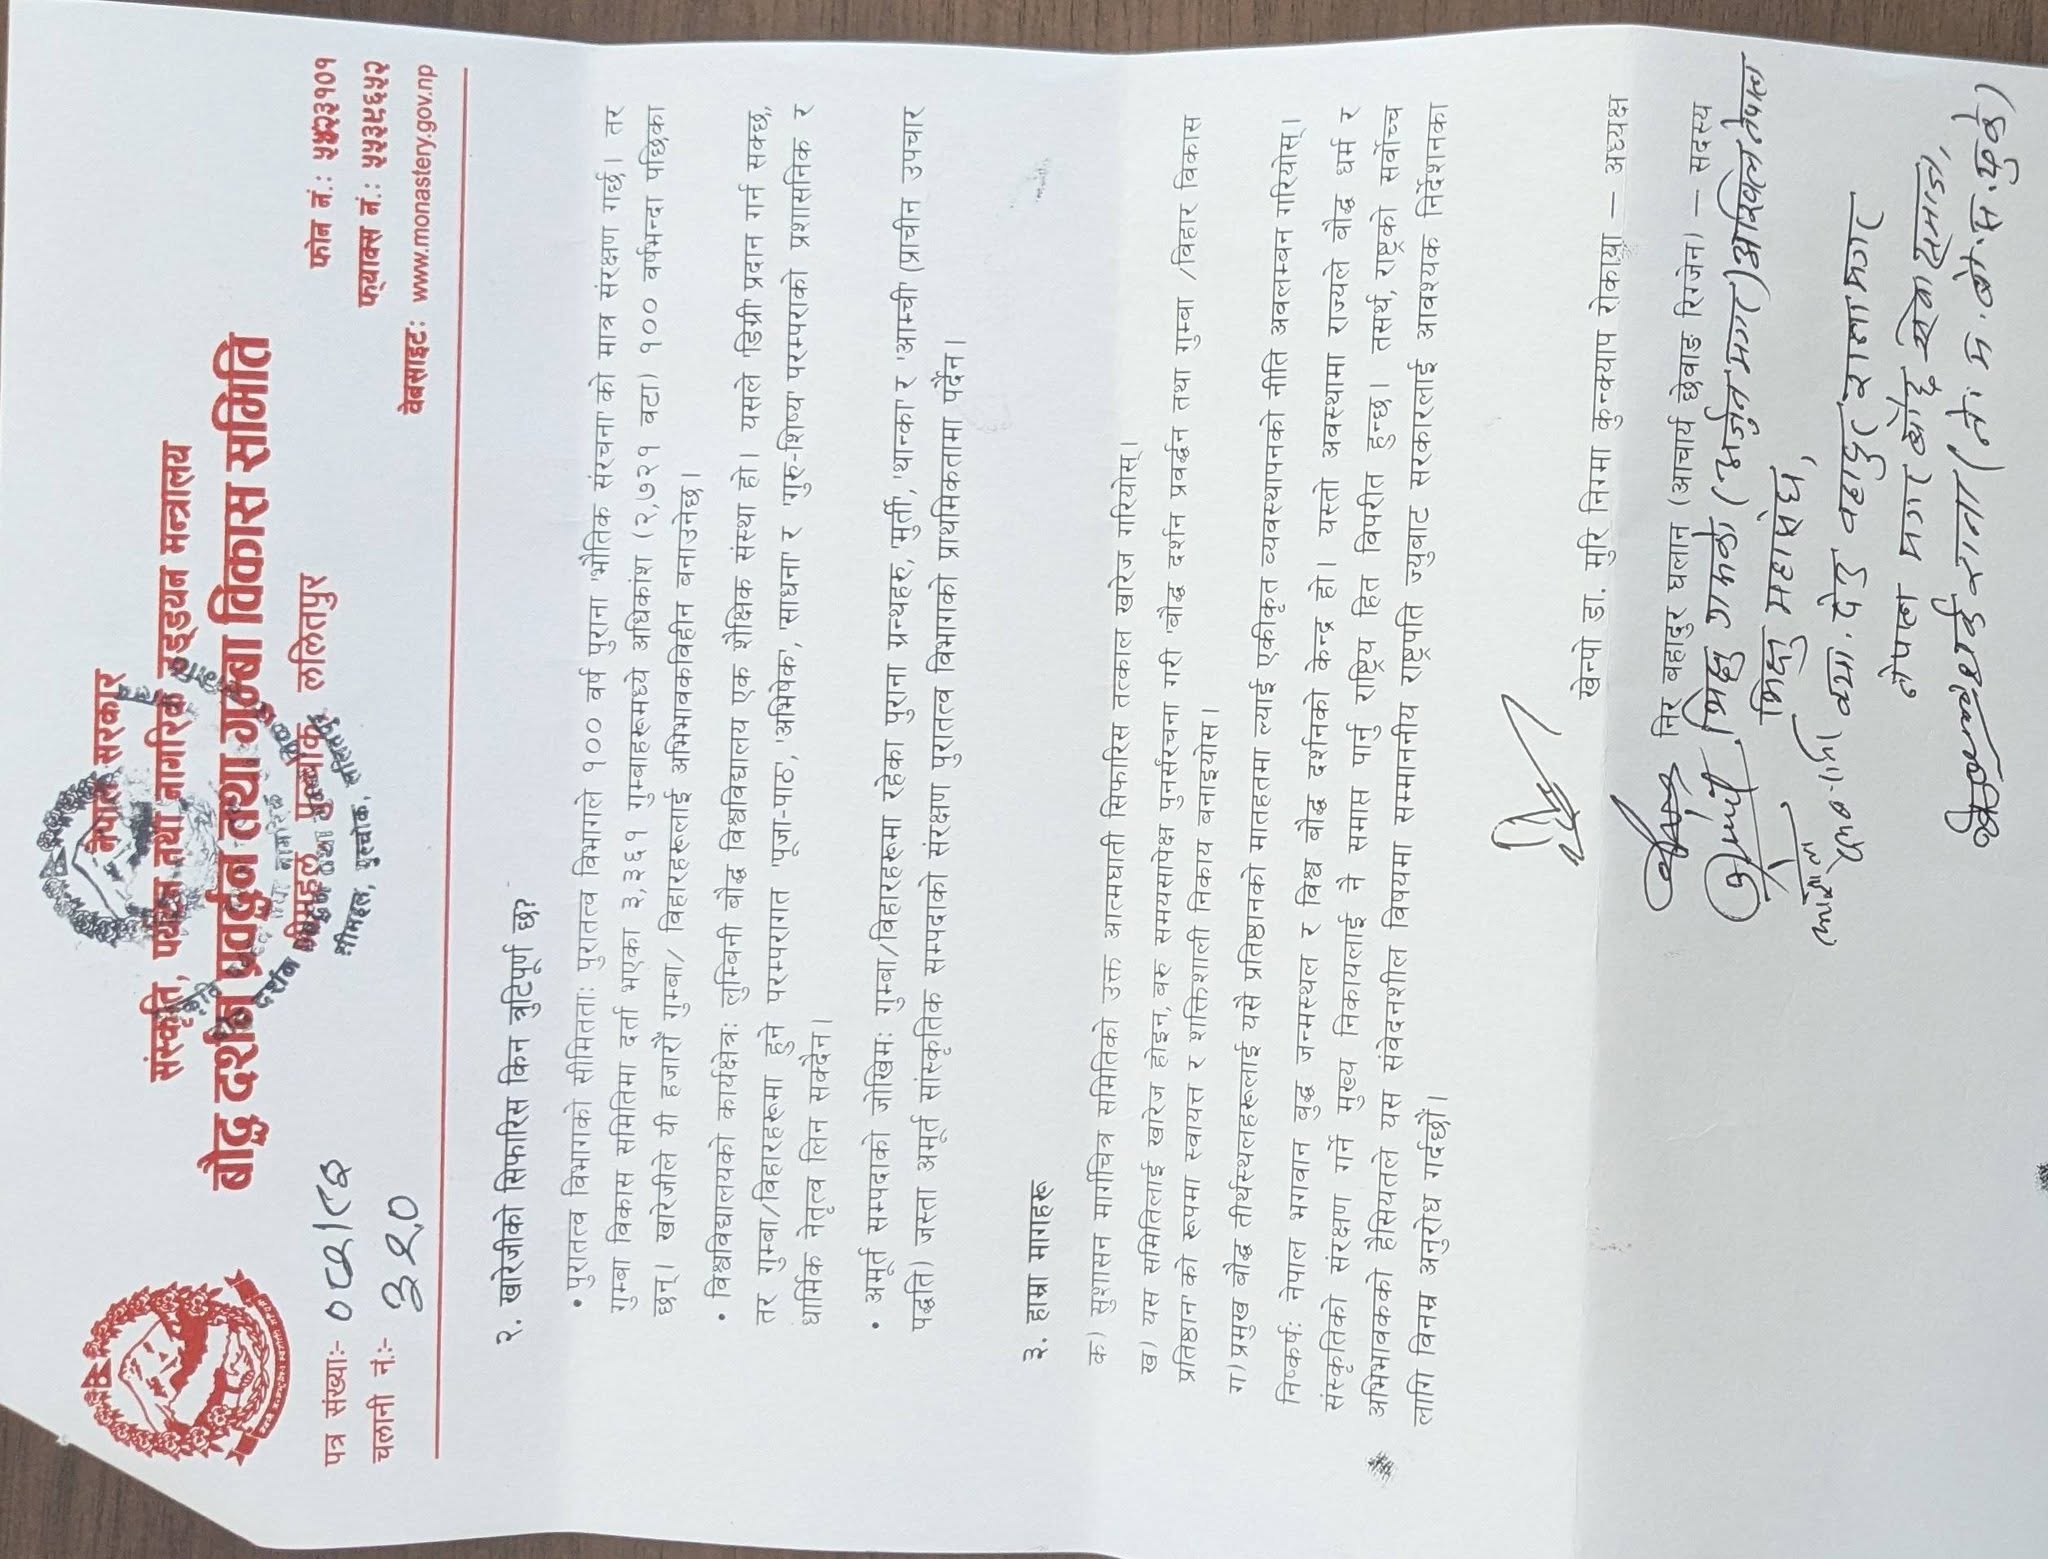 नेपाल सरकार
संस्कृति, पर्यटन तथा नागरिक उड्डयन मन्त्रालय
बौद्ध दर्शन प्रवर्द्धन तथा गुम्बा विकास समिति
भीमहल, पुल्चोक, ललितपुर
फोन नं.:
फ्याक्स नं.: ५५३८६५२
वेबसाइट: www.monastery.gov.np
पत्र संख्या:- ०८२।८३
चलानी नं.:- ३२०
२. खारेजीको सिफारिस किन त्रुटिपूर्ण छ?
• पुरातत्व विभागको सीमितता: पुरातत्व विभागले १०० वर्ष पुराना 'भौतिक संरचना को मात्र संरक्षण गर्छ। तर
गुम्बा विकास समितिमा दर्ता भएका ३,३६१ गुम्बाहरूमध्ये अधिकांश (२,७२१ वटा) १०० वर्षभन्दा पछिका
छन्। खारेजीले यी हजारौँ गुम्बा/ विहारहरूलाई अभिभावकविहीन बनाउनेछ।
• विश्वविद्यालयको कार्यक्षेत्र: लुम्बिनी बौद्ध विश्वविद्यालय एक शैक्षिक संस्था हो। यसले 'डिग्री' प्रदान गर्न सक्छ,
तर गुम्बा/विहारहरूमा हुने परम्परागत 'पूजा-पाठ', 'अभिषेक', 'साधना' र 'गुरु-शिष्य' परम्पराको प्रशासनिक र
धार्मिक नेतृत्व लिन सक्दैन।
• अमूर्त सम्पदाको जोखिम: गुम्बा/विहारहरूमा रहेका पुराना ग्रन्थहरू, 'मूर्ती', 'थान्का' र 'आम्ची' (प्राचीन उपचार
पद्धति) जस्ता अमूर्त सांस्कृतिक सम्पदाको संरक्षण पुरातत्व विभागको प्राथमिकतामा पर्दैन।
३. हाम्रा मागहरू
क) सुशासन मार्गचित्र समितिको उक्त आत्मघाती सिफारिस तत्काल खारेज गरियोस्।
ख) यस समितिलाई खारेज होइन, बरु समयसापेक्ष पुनर्संरचना गरी 'बौद्ध दर्शन प्रवर्द्धन तथा गुम्बा /विहार विकास
प्रतिष्ठान' को रूपमा स्वायत्त र शक्तिशाली निकाय बनाइयोस।
ग) प्रमुख बौद्ध तीर्थस्थलहरूलाई यसै प्रतिष्ठानको मातहतमा ल्याई एकीकृत व्यवस्थापनको नीति अवलम्बन गरियोस्।
निष्कर्ष: नेपाल भगवान बुद्ध जन्मस्थल र विश्व बौद्ध दर्शनको केन्द्र हो। यस्तो अवस्थामा राज्यले बौद्ध धर्म र
संस्कृतिको संरक्षण गर्ने मुख्य निकायलाई नै समाप्त पार्नु राष्ट्रिय हित विपरीत हुन्छ। तसर्थ, राष्ट्रको सर्वोच्च
अभिभावकको हैसियतले यस संवेदनशील विषयमा सम्माननीय राष्ट्रपति ज्युबाट सरकारलाई आवश्यक निर्देशनका
लागि विनम्र अनुरोध गर्दछौं।
खेन्पो डा. मुरि निग्मा कुन्क्याप रोकाया — अध्यक्ष
निर बहादुर घलान (आचार्य छेवाङ रिग्जेन) — सदस्य
भिक्षु
भिक्षु महासंघ,
बहादुर राना मगर
नेपाल मगर बौद्ध सेवा समाज,